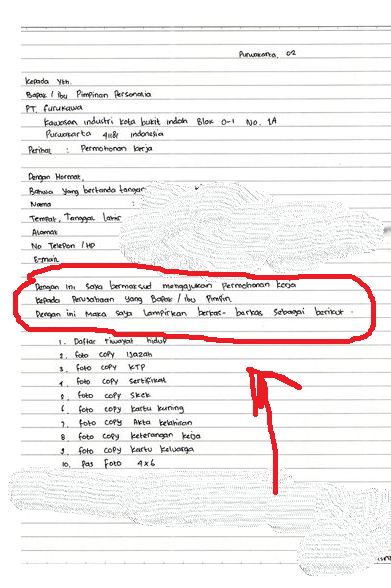 Purwakarta, 02
Kepada Yth.
Bapak / Ibu Pimpinan Personalia
PT. Furukawa
Kawasan industri kota bukit indah Blok D-1 No. 1A
Purwakarta 41181 indonesia
Perihal : Permohonan kerja
Dengan Hormat,
Bahwa yang bertanda tangan
Nama :
Tempat, Tanggal lahir
Alamat
No Telepon / HP
E-mail
Dengan ini saya bermaksud mengajukan permohonan kerja
kepada Perusahaan yang Bapak / ibu Pimpin
Dengan ini Maka saya lampirkan berkas-berkas sebagai berikut.
1. Daftar riwayat hidup
2. foto copy Ijazah
3. foto copy KTP
4. foto copy sertifikat
5. foto copy SKCK
6. foto copy kartu kuning
7. foto copy Akta kelahiran
8. foto copy keterangan kerja
9. foto copy kartu keluarga
10. Pas foto 4x6